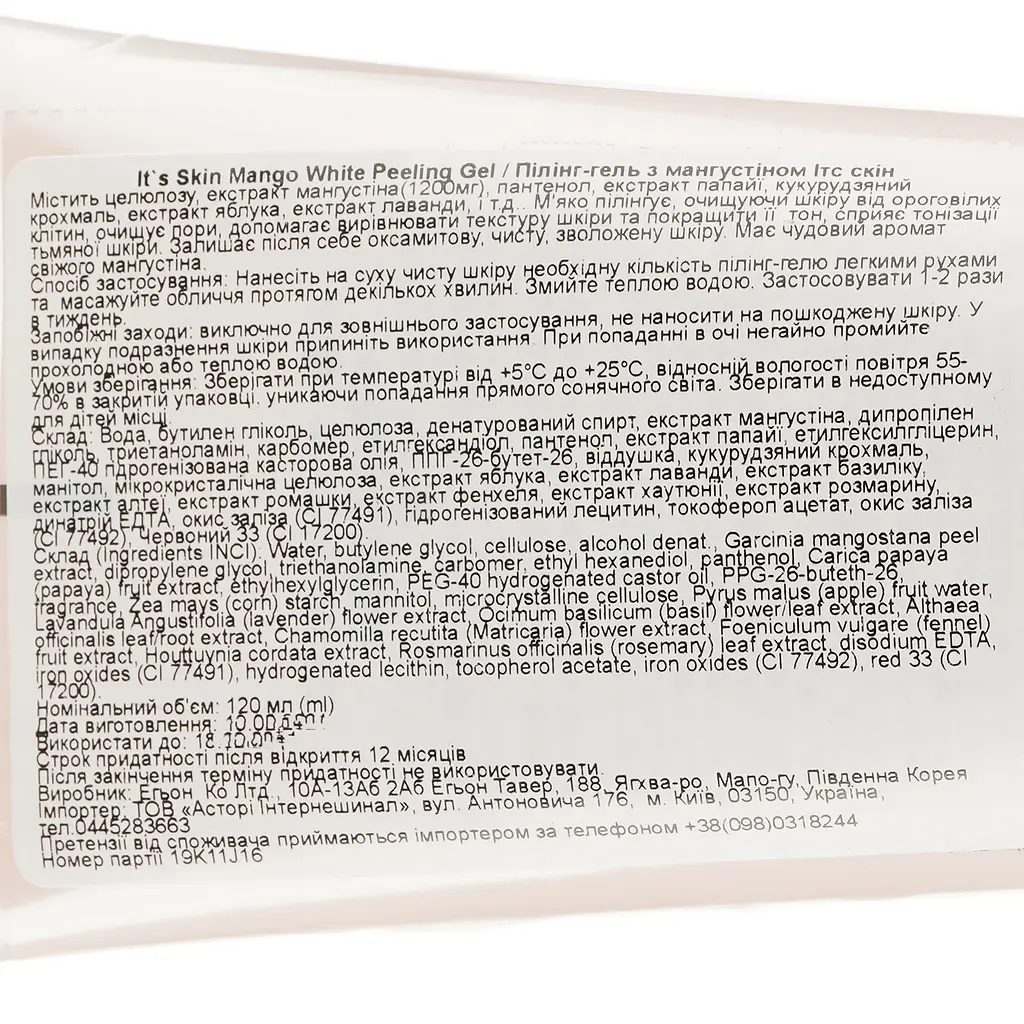 It`s Skin Mango White Peeling Gel / Пілінг-гель з мангустіном Ітс скін
Містить целюлозу, екстракт мангустіна(1200мг), пантенол, екстракт папайї, кукурудзяний
крохмаль, екстракт яблука, екстракт лаванди, і т.д.. М'яко пілінгує, очищуючи шкіру від ороговілих
клітин, очищує пори, допомагає вирівнювати текстуру шкіри та покращити її тон, сприяє тонізації
тьмяної шкіри. Залишає після себе оксамитову, чисту, зволожену шкіру. Має чудовий аромат
свіжого мангустіна.
Спосіб застосування: Нанесіть на суху чисту шкіру необхідну кількість пілінг-гелю легкими рухами
та масажуйте обличчя протягом декількох хвилин. Змийте теплою водою. Застосовувати 1-2 рази
в тиждень.
Запобіжні заходи: виключно для зовнішнього застосування, не наносити на пошкоджену шкіру. У
випадку подразнення шкіри припиніть використання. При попаданні в очі негайно промийте
прохолодною або теплою водою.
Умови зберігання: Зберігати при температурі від +5°C до +25°C, відносній вологості повітря 55-
70% в закритій упаковці, уникаючи попадання прямого сонячного світа. Зберігати в недоступному
для дітей місці.
Склад: Вода, бутилен гліколь, целюлоза, денатурований спирт, екстракт мангустіна, дипропілен
гліколь, триетаноламін, карбомер, етилгександіол, пантенол, екстракт папайї, етилгексилгліцерин,
ПЕГ-40 гідрогенізована касторова олія, ППГ-26-бутет-26, віддушка, кукурудзяний крохмаль,
манітол, мікрокристалічна целюлоза, екстракт яблука, екстракт лаванди, екстракт базиліку,
екстракт алтеї, екстракт ромашки, екстракт фенхеля, екстракт хаутюнії, екстракт розмарину,
динатрій ЕДТА, окис заліза (CI 77491), гідрогенізований лецитин, токоферол ацетат, окис заліза
(CI 77492), Червоний 33 (CI 17200).
Склад (Ingredients INCI): Water, butylene glycol, cellulose, alcohol denat., Garcinia mangostana peel
extract, dipropylene glycol, triethanolamine, carbomer, ethyl hexanediol, panthenol, Carica papaya
(papaya) fruit extract, ethylhexylglycerin, PEG-40 hydrogenated castor oil, PPG-26-buteth-26,
fragrance, Zea mays (corn) starch, mannitol, microcrystalline cellulose, Pyrus malus (apple) fruit water,
Lavandula Angustifolia (lavender) flower extract, Ocimum basilicum (basil) flower/leaf extract, Althaea
officinalis leaf/root extract, Chamomilla recutita (Matricaria) flower extract, Foeniculum vulgare (fennel)
fruit extract, Houttuynia cordata extract, Rosmarinus officinalis (rosemary) leaf extract, disodium EDTA,
iron oxides (CI 77491), hydrogenated lecithin, tocopherol acetate, iron oxides (CI 77492), red 33 (CI
17200).
Номінальний об'єм: 120 мл (ml)
Дата виготовлення:
Використати до:
Строк придатності після відкриття 12 місяців
Після закінчення терміну придатності не використовувати.
Виробник: Егьон Ко Лтд., 10А-13Аб 2Аб Егьон Тавер, 188, Ягхва-ро, Мапо-гу, Південна Корея
Імпортер: ТОВ «Асторі Інтернешинал», вул. Антоновича 176, м. Київ, 03150, Україна,
тел.0445283663
Претензії від споживача приймаються імпортером за телефоном +38(098)0318244
Номер партії 19K11J16